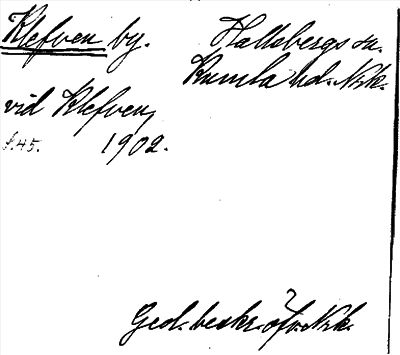 Klefven by. Hallsbergs sn.
Kumla hd. Nrk.
vid Klefven,
s. 45. 1902.
Geol. beskr. öfv. Nrk.